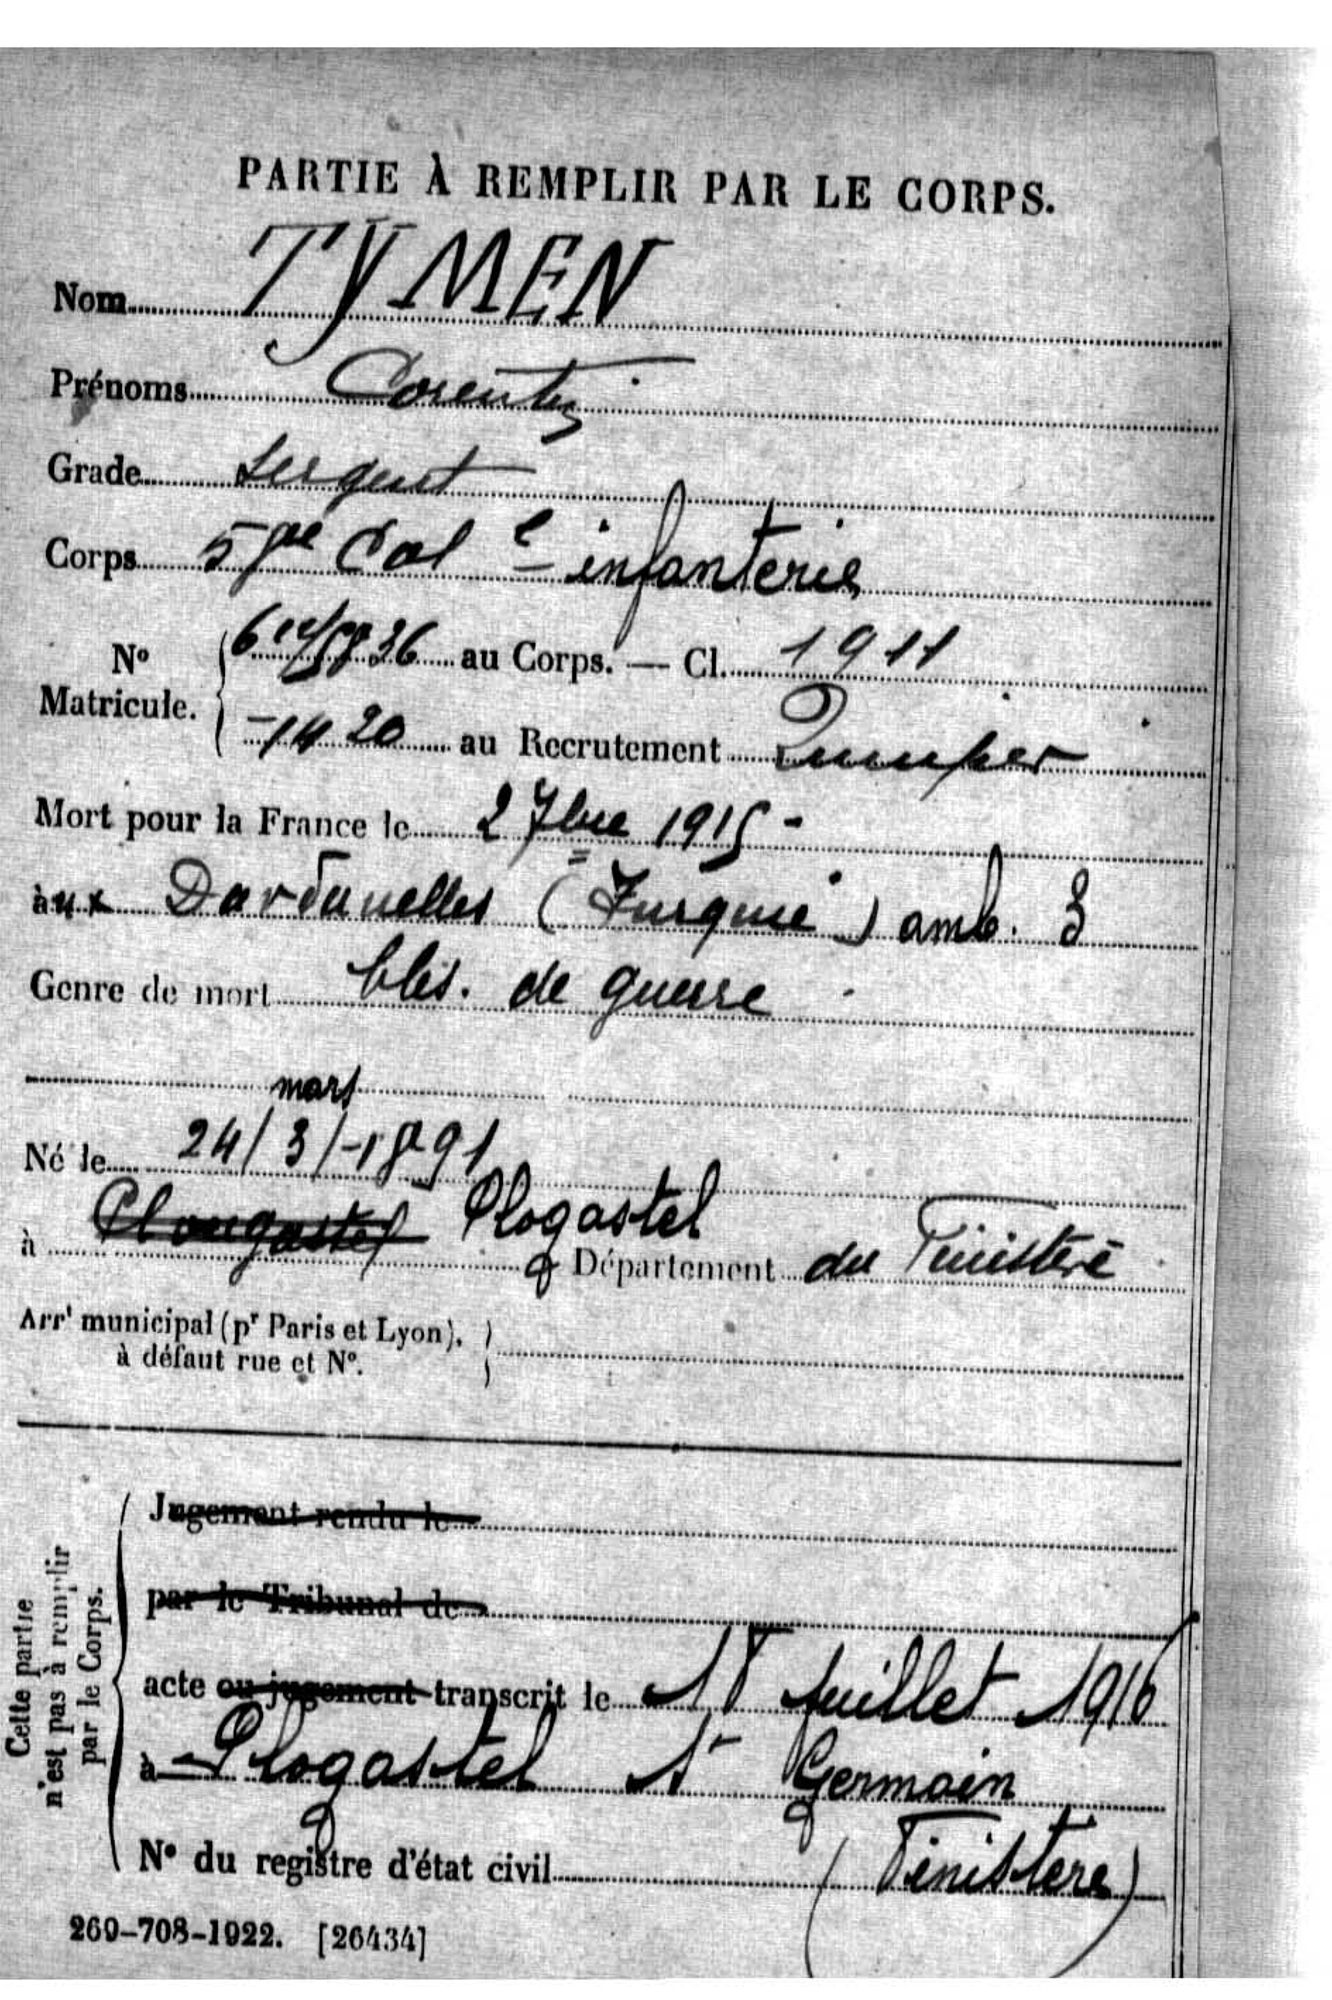 PARTIE À REMPLIR PAR LE CORPS.
Nom TYMEN
Prénoms Corentin
Grade Sergent
Corps 5me Col e infanterie
No Matricule. { 36 au Corps. — Cl. 1911
1420 au Recrutement Quimper
Mort pour la France le 2 7bre 1915 -
àux Dardanelles (Turquie) amb. 3
Genre de mort bles. de guerre
mars
Né le 24/3/-1891
à Plougastel Plogastel Département du Finistère
Arrt municipal (pr Paris et Lyon), }
à défaut rue et No.
Cette partie
n'est pas à remplir
par le Corps.
Jugement rendu le
par le Tribunal de
acte ou jugement transcrit le 18 Juillet 1916
à Plogastel St Germain
No du registre d'état civil (Finistere)
269-708-1922. [26434]